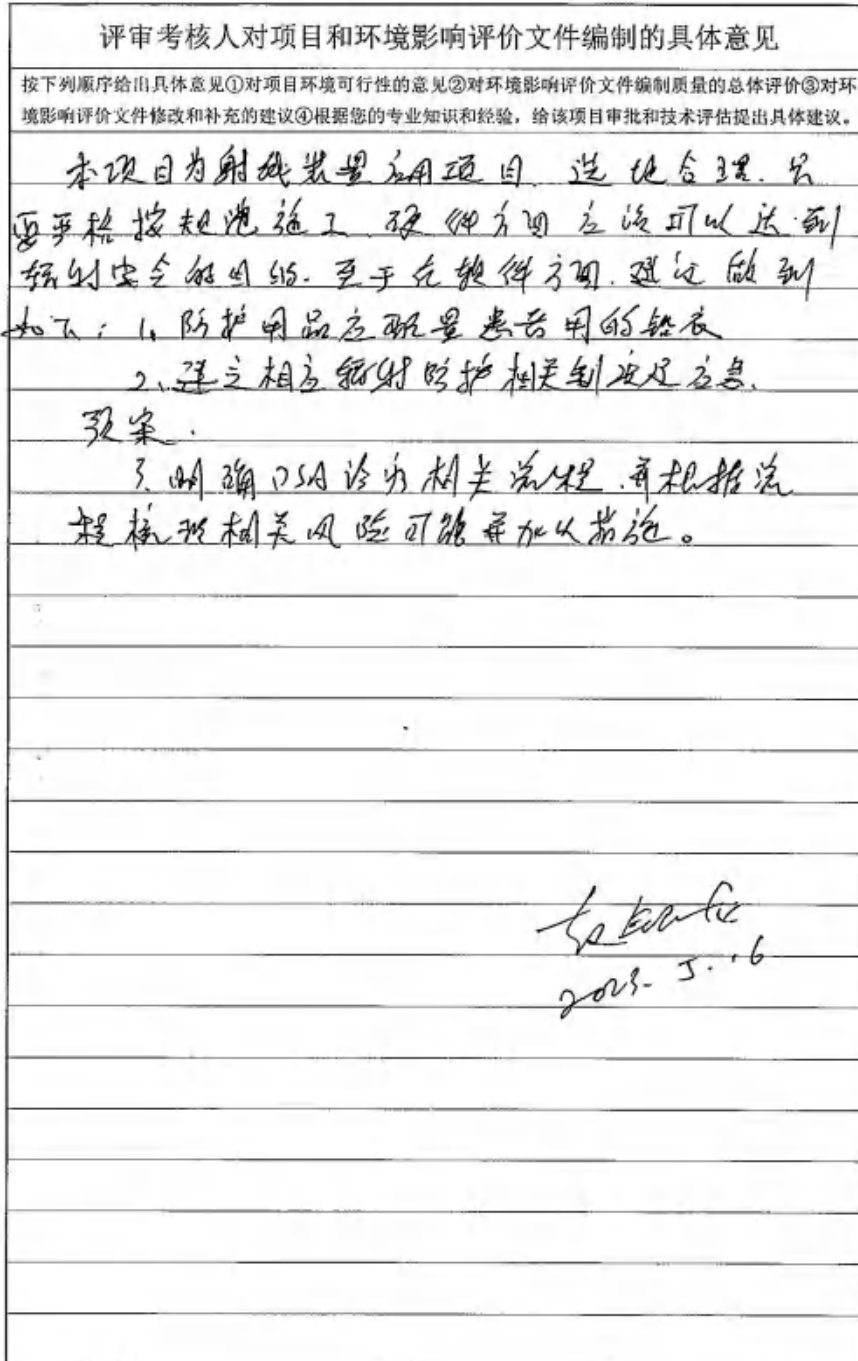 评审考核人对项目和环境影响评价文件编制的具体意见
按下列顺序给出具体意见①对项目环境可行性的意见②对环境影响评价文件编制质量的总体评价③对环
境影响评价文件修改和补充的建议④根据您的专业知识和经验，给该项目审批和技术评估提出具体建议。
本项目为射线装置应用项目，选地合理，只
要严格按规范施工，硬件方面应该可以达到
辐射安全的目的。至于在软件方面，建议做到
如下：1、防护用品应配置患者用的铅衣
2、建立相应辐射防护相关制度及应急
预案。
3、明确DSA诊疗相关流程，并根据流
程梳理相关风险可能并加以措施。
2023.5.16